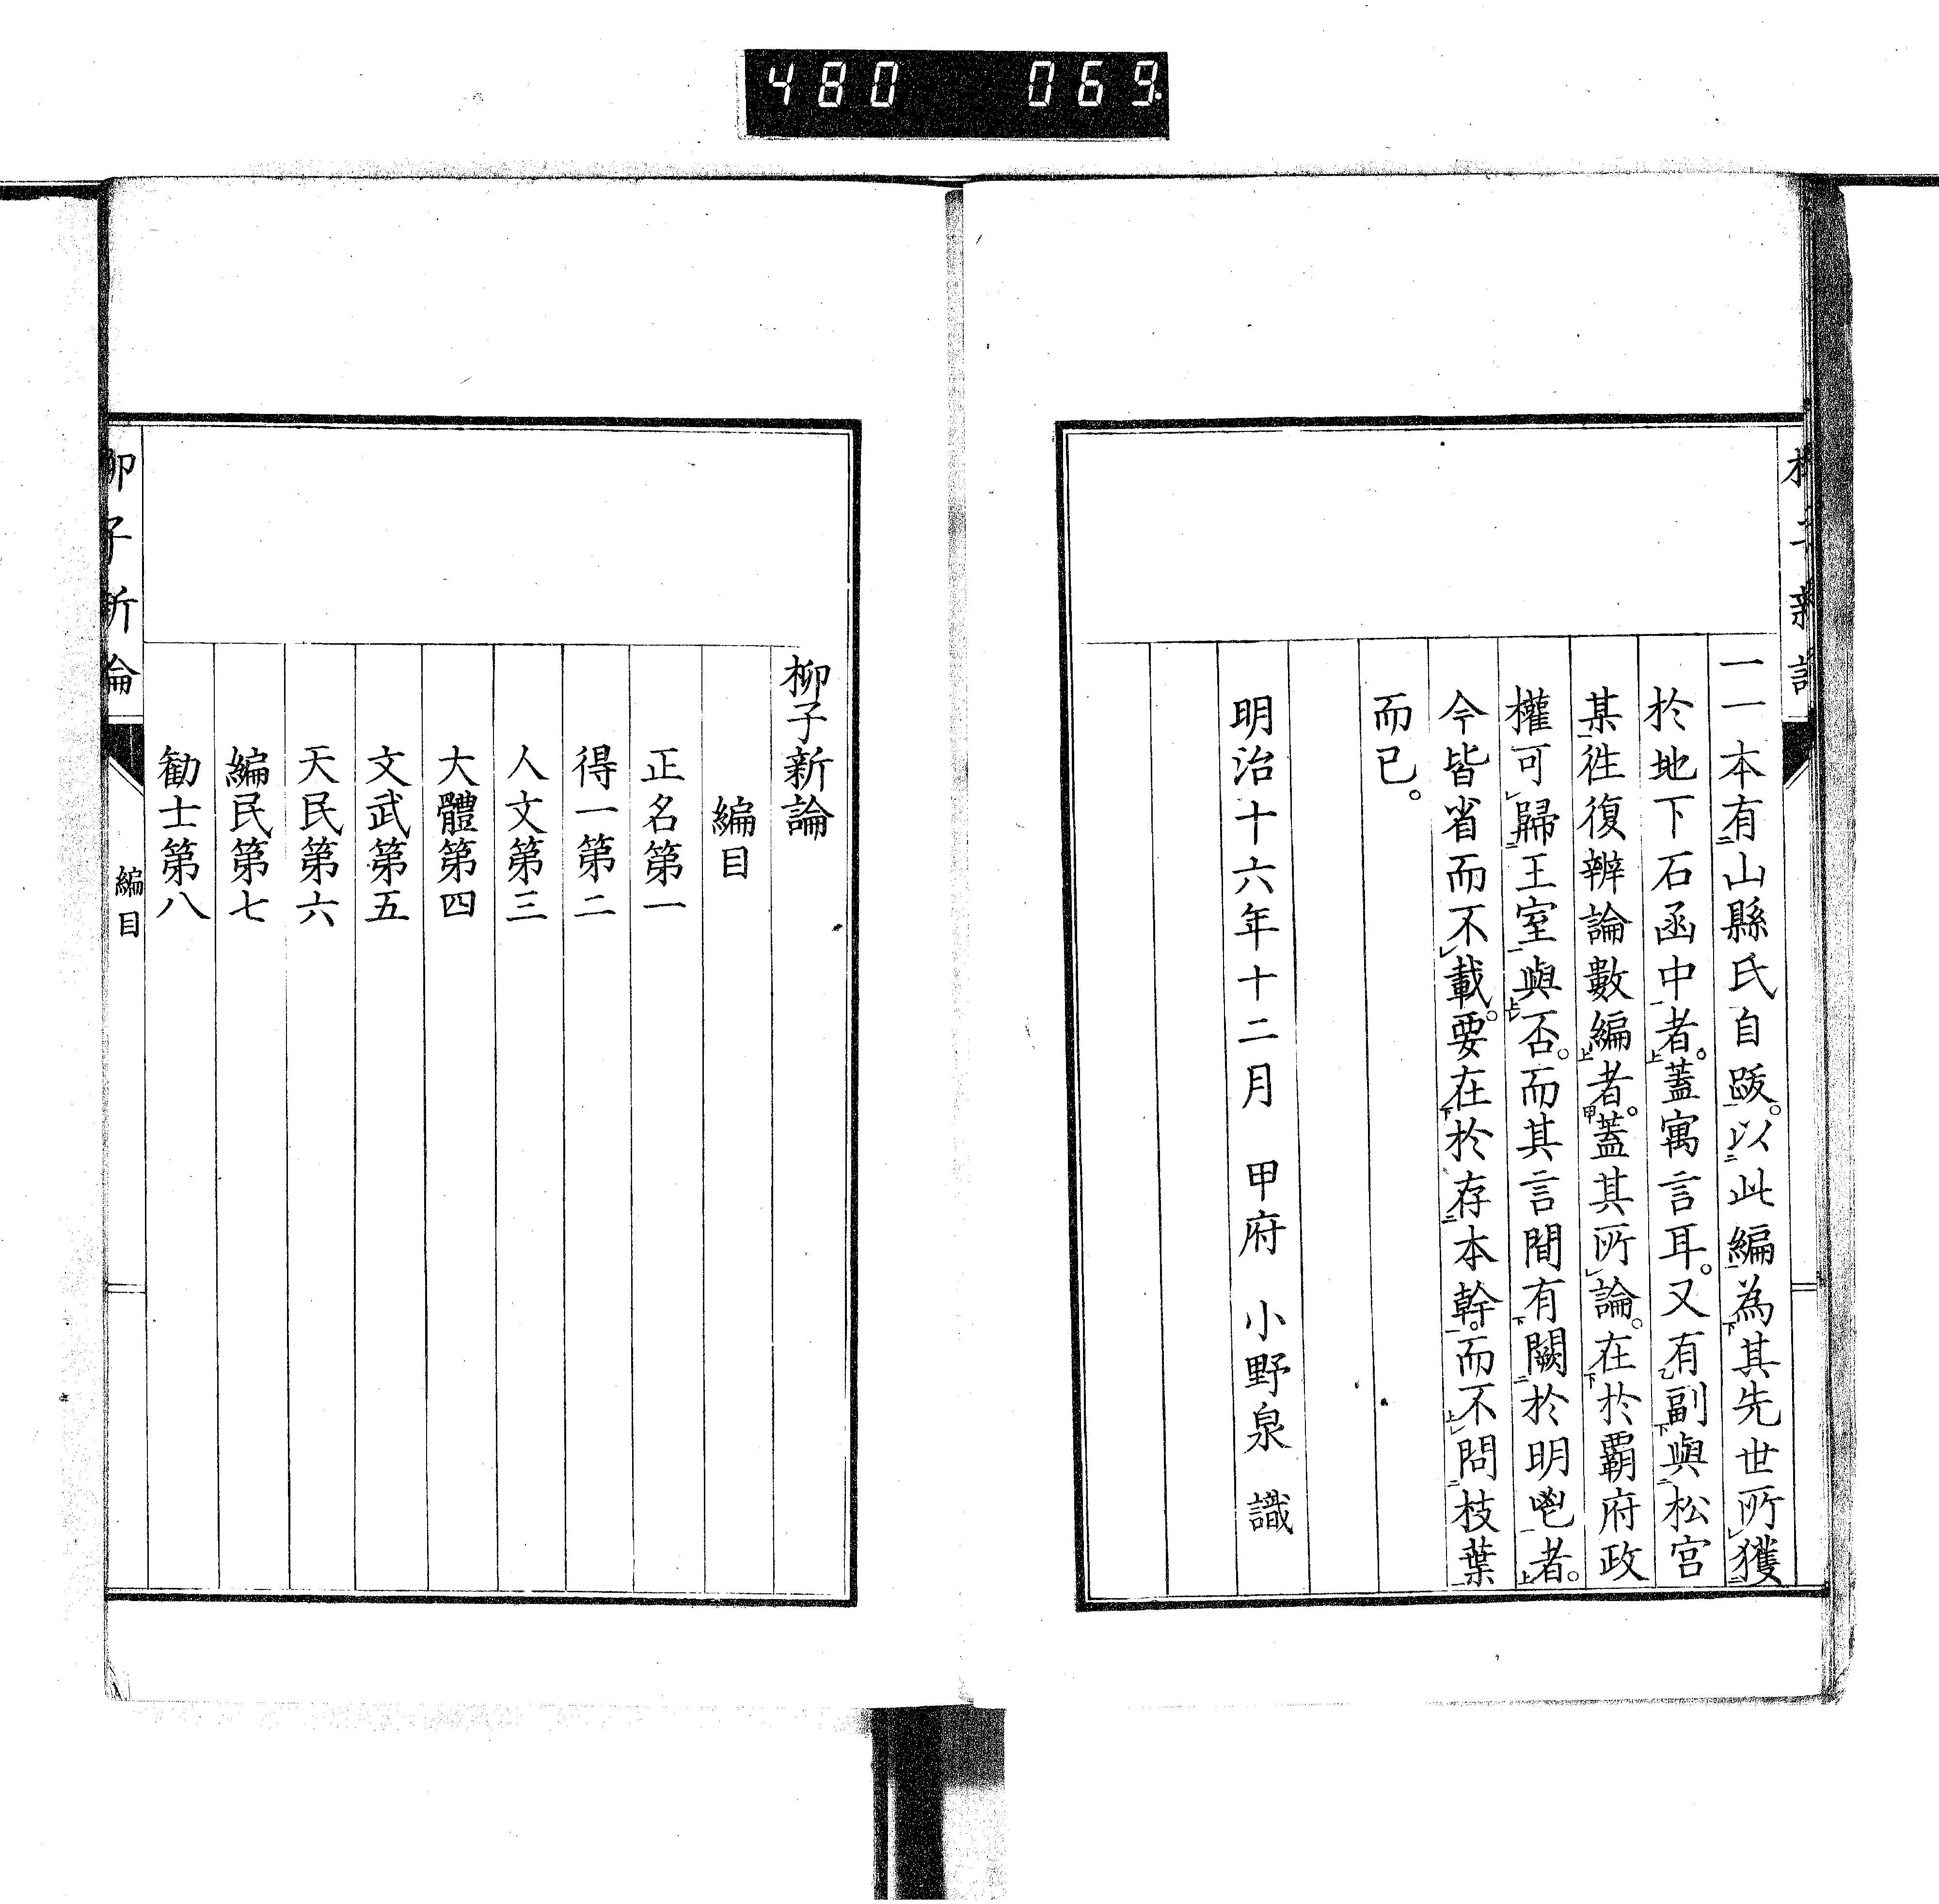 480 069
一一本有山縣氏自跋。以此編為其先世所獲
於地下石函中者。蓋寓言耳。又有副與松宮
某往復辨論數編者。蓋其所論。在於覇府政
權可歸王室與否。而其言間有闕於明鬯者。
今皆省而不載。要在於存本幹。而不問枝葉
而已。
明治十六年十二月 甲府 小野泉 識
柳子新論
編目
正名第一
得一第二
人文第三
大體第四
文武第五
天民第六
編民第七
勧士第八
柳子新論 編目